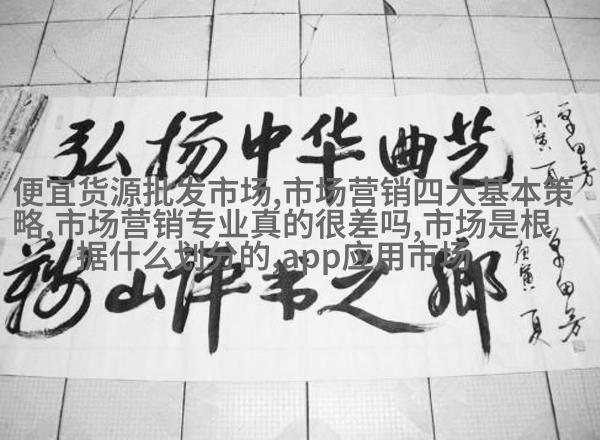 弘扬中华曲艺
庚寅 夏
单田芳
便宜货源批发市场,市场营销四大基本策
略,市场营销专业真的很差吗,市场是根
据什么划分的,app应用市场
鞍山评书之鄉
庚寅 夏
单田芳